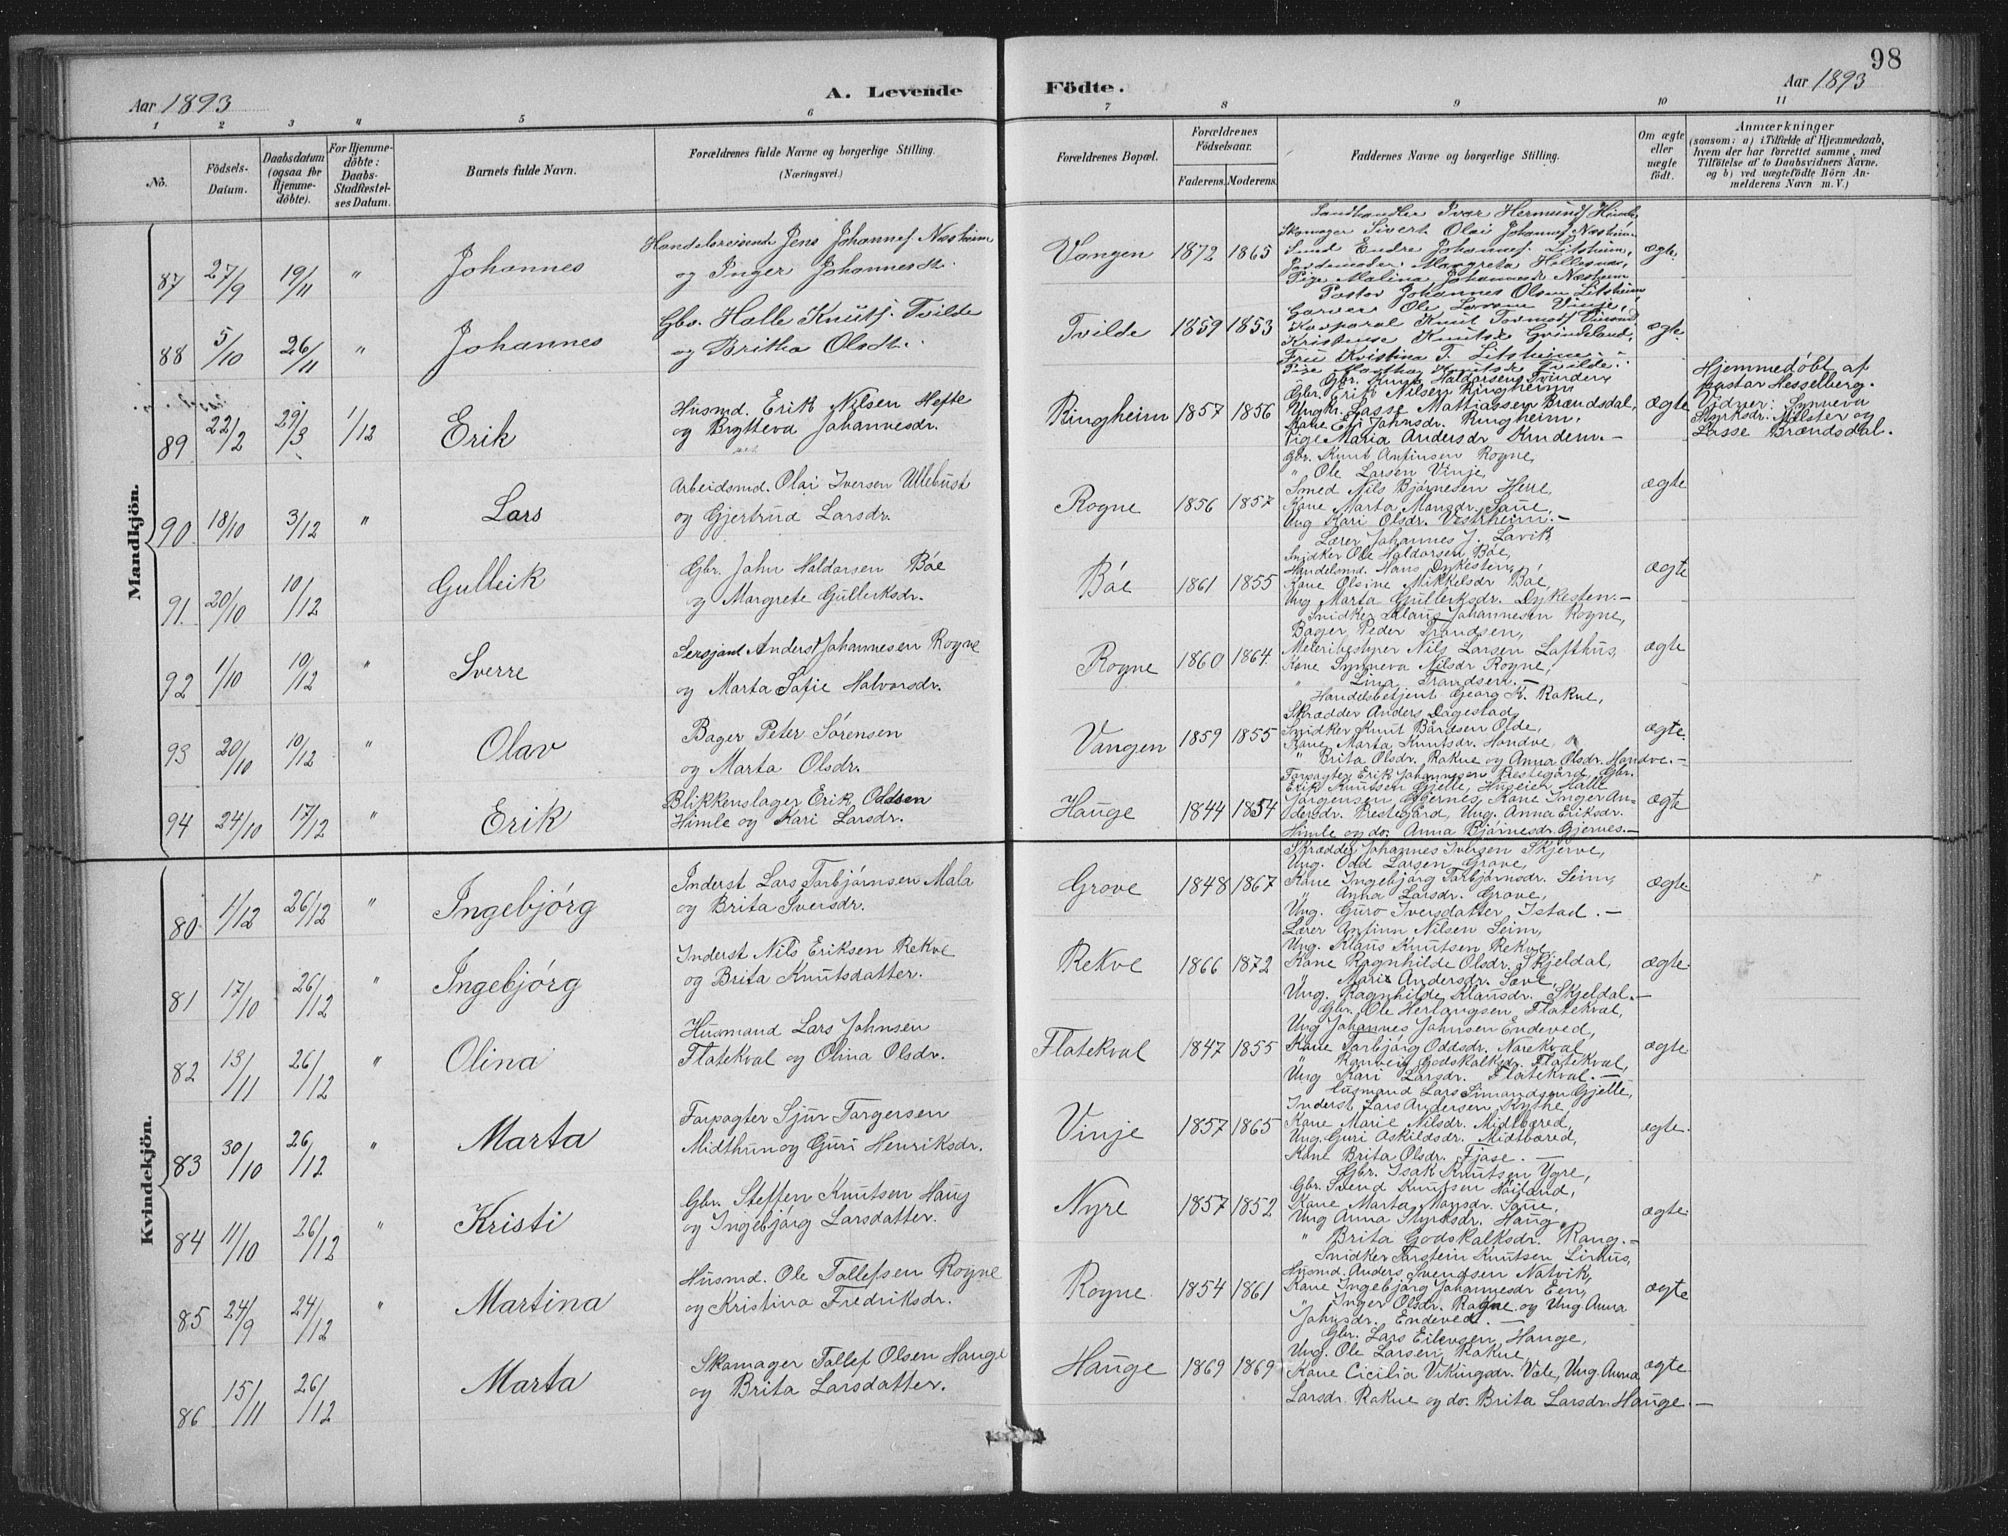 98
Aar 1893
A. Levende
Födte.
Aar 1893
1 2 3 " 5 6 7 8 9 10 11
No.
Födsels-Datum.
Daabsdatum (ogsaa for Hjemmedöbte).
For Hjemmedöbte: Daabs-Stadfæstelses Datum.
Barnets fulde Navn.
Forældrenes fulde Navne og borgerlige Stilling. (Næringsvei.)
Forældrenes Bopæl.
Forældrenes Födselsaar.
Faderens. Moderens.
Faddernes Navne og borgerlige Stilling.
Om ægte eller uægte födt.
Anmærkninger
(saasom: a) i Tilfælde af Hjemmedaab, hvem der har forrettet samme, med Tilföielse af to Daabsvidners Navne, og b) ved uægtefödte Börn Anmelderens Navn m. V.)
Mandkjön.
87 27/9 19/11 " Johannes
Handelsreisende Jens Johannes. Næsheim
og Inger Johannesdt.
Vangen 1872 1865
Landhandler Ivar Hermunds. Himle,
Skomager Sivert Olai Johannes. Næsheim
Smed Endre Johannes. Litsheim,
Jordemoder Margreta Hellesnes,
Pige Malina Johannesdt. Næsheim
ægte
88 5/10 26/11 " Johannes
Gbr. Halle Knuts. Tvilde
og Britha Olsdt.
Tvilde 1859 1853
Pastor Johannes Olsen Litsheim
Garver Ole Larsen Vinje,
Korporal Knut Tormods.
Kristense Knutsdt. Grindeland,
Frue Kristina T. Litsheim
Pige Martha Knutsdt. Tvilde.
ægte
89 22/2 29/3 1/12 Erik
Husmd. Erik Nilsen Hefte
og Brytteva Johannesdr.
Ringheim 1857 1856
Gbr. Knut Haldorsen Tvinde,
Gbr. Eirik Nilsen Ringheim
Ungk. Lasse Mattiassen Brændsdal,
Kone Eli Johnsdr. Ringheim,
Pige Maria Andersdr Kindem.—
ægte
Hjemmedöbt af
pastor Hesselberg.
Vidner: Synneva
Styrksdr. Mölster og
Lasse Brændsdal.
90 18/10 3/12 " Lars
Arbeidsmd. Olai Iversen Ullebust
og Gjertrud Larsdr.
Rogne 1856 1857
Gbr. Knut Anfinsen Rogne,
" Ole Larsen Vinje,
Smed Nils Bjørnesen Herre,
Kone Marta Monsdr. Saue,
Ung Kari Olsdr. Vestrheim.—
ægte
91. 20/10 10/12 Gulleik
Gbr. John Haldorsen Böe
og Margrete Gulleiksdr.
Böe 1861 1855
Lærer Johannes J. Lavik
Snidker Ole Haldorsen Böe,
Handelsmd. Hans Dykesten,
Kone Olsine Mikkelsdr Böe,
Ung Marta Gulleiksdr. Dykesten.—
ægte
92 1/10 10/12 " Sverre
Sersjant Anders Johannesen Rogne
og Marta Sofie Halvorsdr.
Rogne 1860 1864
Snidker Klaus Johannesen Rogne,
Bager Peder Trondsen,
Meieribestyrer Nils Larsen Lofthus,
Kone Synneva Nilsdr Rogne,
" Lina Trondsen.—
ægte
93 20/10 10/12 " Olav
Bager Peter Sörensen
og Marta Olsdr.
Vangen 1859 1855
Handelsbetjent Georg K. Rokne,
Skrædder Anders Dagestad
Snidker Knut Bårdsen Olde,
Kone Marta Knutsdr. Hondve,
" Brita Olsdr. Rokne og Anna Olsdr. Handve.—
ægte.
94 24/10 17/12 " Erik
Blikkenslager Erik Oddsen
Himle og Kari Larsdr.
Hauge 1844 1854
Forpagter Erik Johannesen Prestegård, Gbr.
Erik Knutsen Gjelle, Huseier Halle
Jörgensen Gjernes, Kone Inger An-
dersdr. Prestegård, Ung. Anna Eriksdr.
Himle og do. Anna Bjørnesdr. Gjernes.—
ægte
Kvindekjön.
80 1/12 26/12 " Ingebjórg
Inderst Lars Torbjórnsen Mala
og Brita Iversdr.
Grove 1848 1867
Skrædder Johannes Iversen Skjerve,
Ung. Odd Larsen Grove,
Kone Ingebjörg Torbjørnsdr. Seim,
" Anna Larsdr. Grove,
Ung. Guro Iversdatter Istad.—
ægte
81 17/10 26/12 " Ingebjórg
Inderst Nils Eriksen Rekve
og Brita Knutsdatter.
Rekve 1866 1872
Lærer Anfinn Nilsen Seim,
Ung. Klaus Knutsen Rekve
Kone Ragnhilde Olsdr. Skjeldal,
" Mari Andersdr. Sæve,
Ung. Ragnhilde Klausdr. Skjeldal.—
ægte
82 13/11 26/12 " Olina
Husmand Lars Johnsen
Flatekval og Olina Olsdr.
Flatekval 1847 1855
Gbr. Ole Herlaugsen Flatekval,
Ung Johannes Johnsen Endeved,
Kone Torbjórg Oddsdr. Narekval
" Ranveig Godskalksdr. Flatekval,
Ung Kari Larsdr. Flatekval.—
ægte
83 30/10 26/12 " Marta
Forpagter Sjur Torgersen
Midthun og Guri Henriksdr.
Vinje 1857 1865
Husmand Lars Simondsen Gjelle,
Inderst Lars Andersen Kythe,
Kone Marie Nilsdr. Midtbæred,
Ung. Guri Askildsdr. Midtbæred,
Kone Brita Olsdr. Fjose.—
ægte.
84 11/10 26/12 " Kristi
Gbr. Steffen Knutsen Haug
og Ingebjórg Larsdatter.
Nyre 1857 1852
Gbr. Isak Knutsen Ygre,
Gbr. Svend Knutsen Höiland,
Kone Marta Monsdr. Saue,
Ung Anna Styrksdr. Haug,
" Brita Godskalksdr. Rong.—
ægte
85 24/9 24/12 " Martina
Husmd. Ole Tollefsen Rogne
og Kristina Fredriksdr.
Rogne 1854 1861
Snidker Torstein Knutsen Lirhus,
Husmd. Anders Svendsen Natvik,
Kone Ingebjörg Johannesdr Een,
" Inger Olsdr. Rogne og Ung Anna
Johnsdr. Endeved.—
ægte
86 15/11 26/12 Marta
Skomager Tollef Olsen Hauge
og Brita Larsdatter.
Hauge 1869 1869
Gbr. Lars Eilevsen Hauge,
Ung. Ole Larsen Rokne
Kone Cicilia Vikingsdr. Væle, Ung. Anna
Larsdr. Rokne og do. Brita Larsdr. Hauge.—
ægte